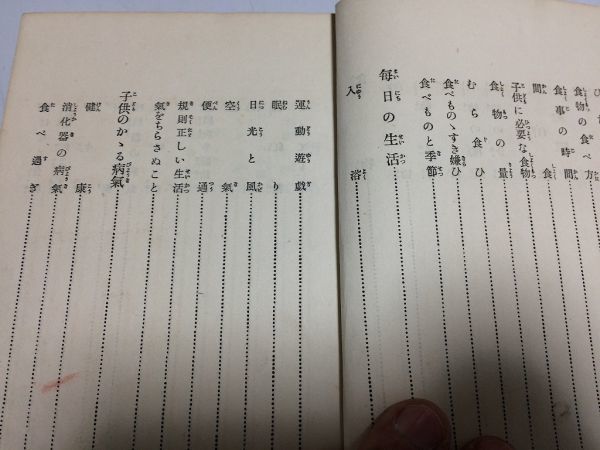 食物の食べ方
食事の時間
間食
子供に必要な食物
食物の量
むら食ひ
食べものゝすき嫌ひ
食べものと季節
毎日の生活
入浴
運動遊戯
眠り
日光と風
空氣
便通
規則正しい生活
氣をちらさぬこと
子供のかゝる病氣
健康
消化器の病氣
食べ過ぎ